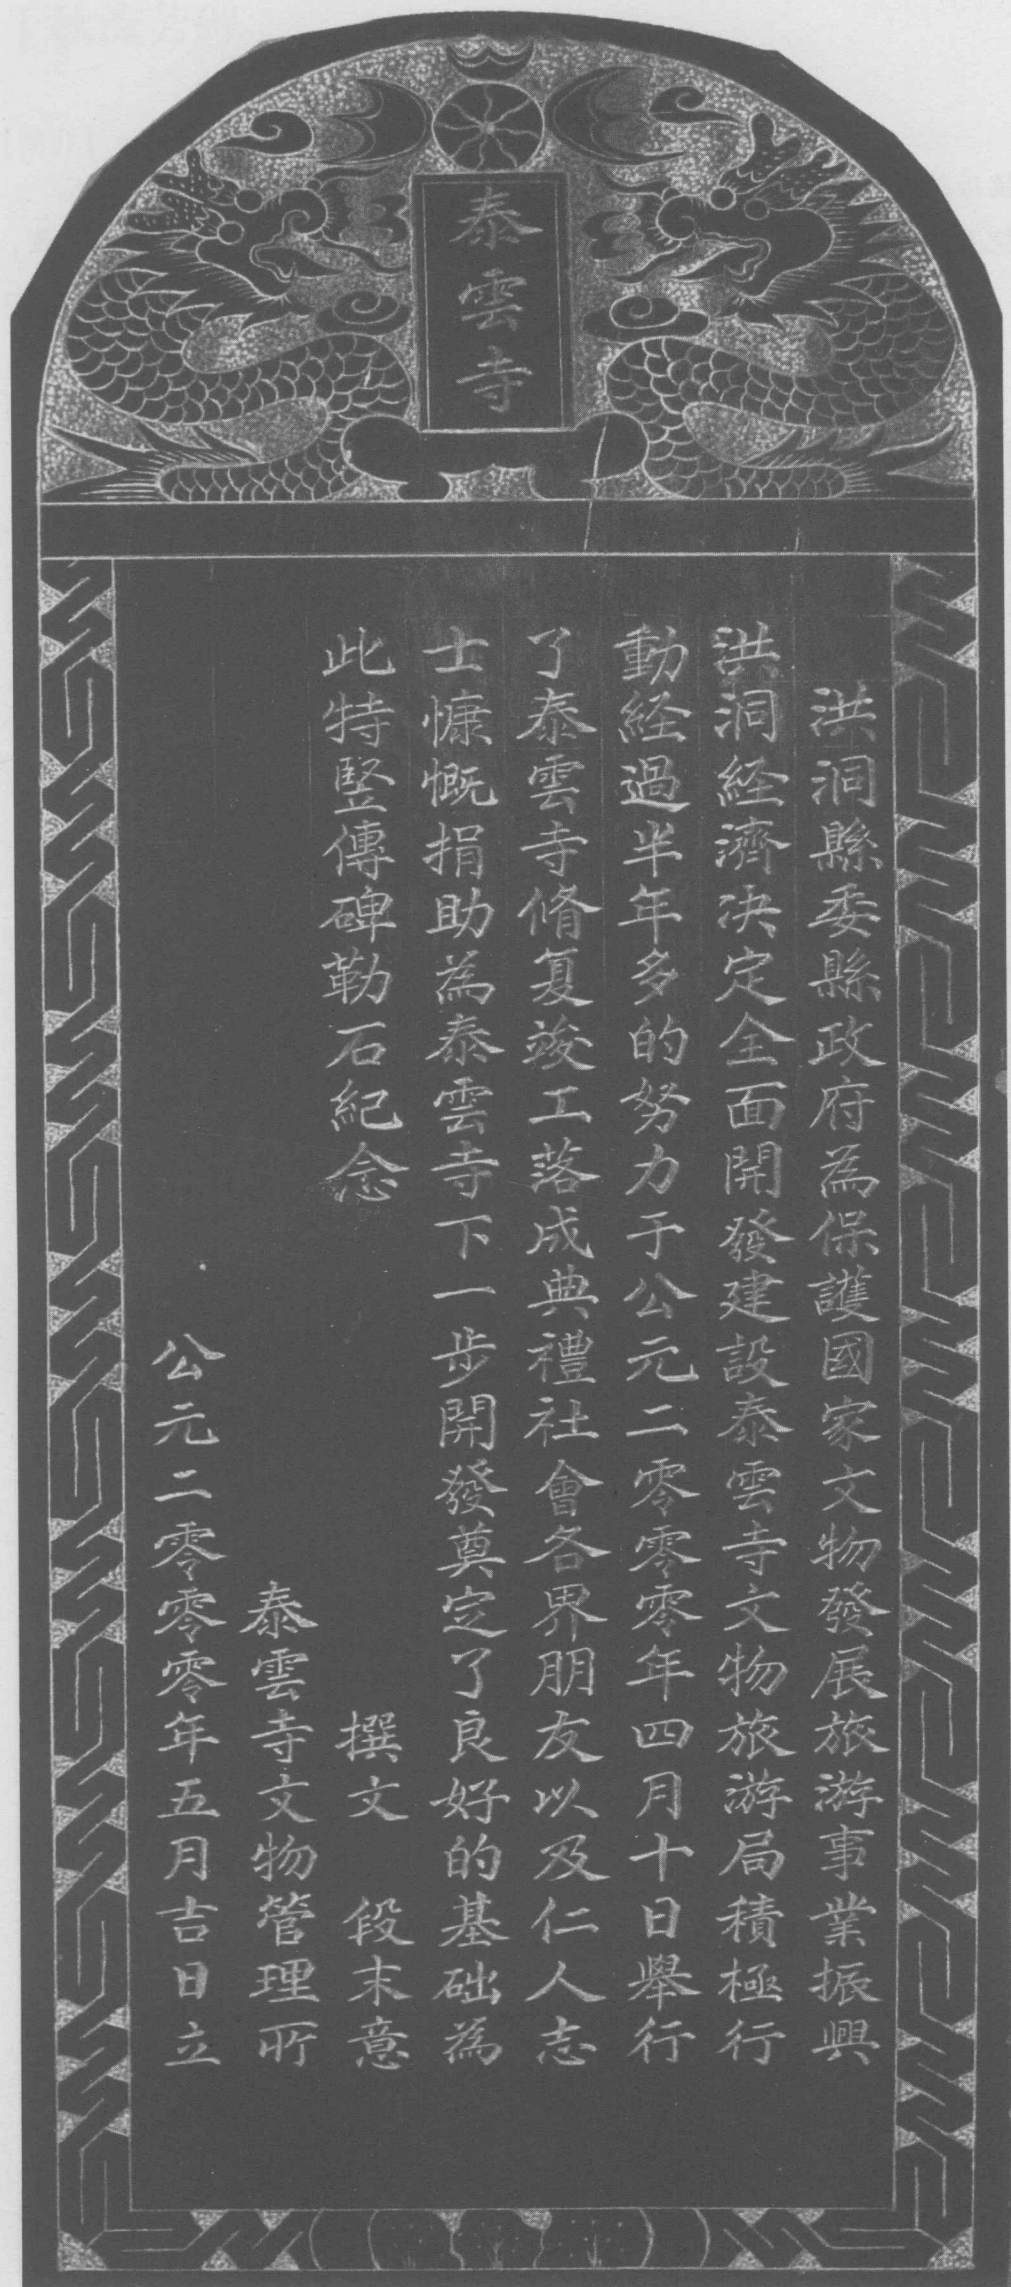 泰雲寺
洪洞縣委縣政府為保護國家文物發展旅游事業振興
洪洞経濟决定全面開發建設泰雲寺文物旅游局積極行
動経過半年多的努力于公元二零零零年四月十日舉行
了泰雲寺脩复竣工落成典禮社會各界朋友以及仁人志
士慷慨捐助為泰雲寺下一步開發奠定了良好的基础為
此特竪傳碑勒石紀念
撰文　段末意
泰雲寺文物管理所
公元二零零零年五月吉日立